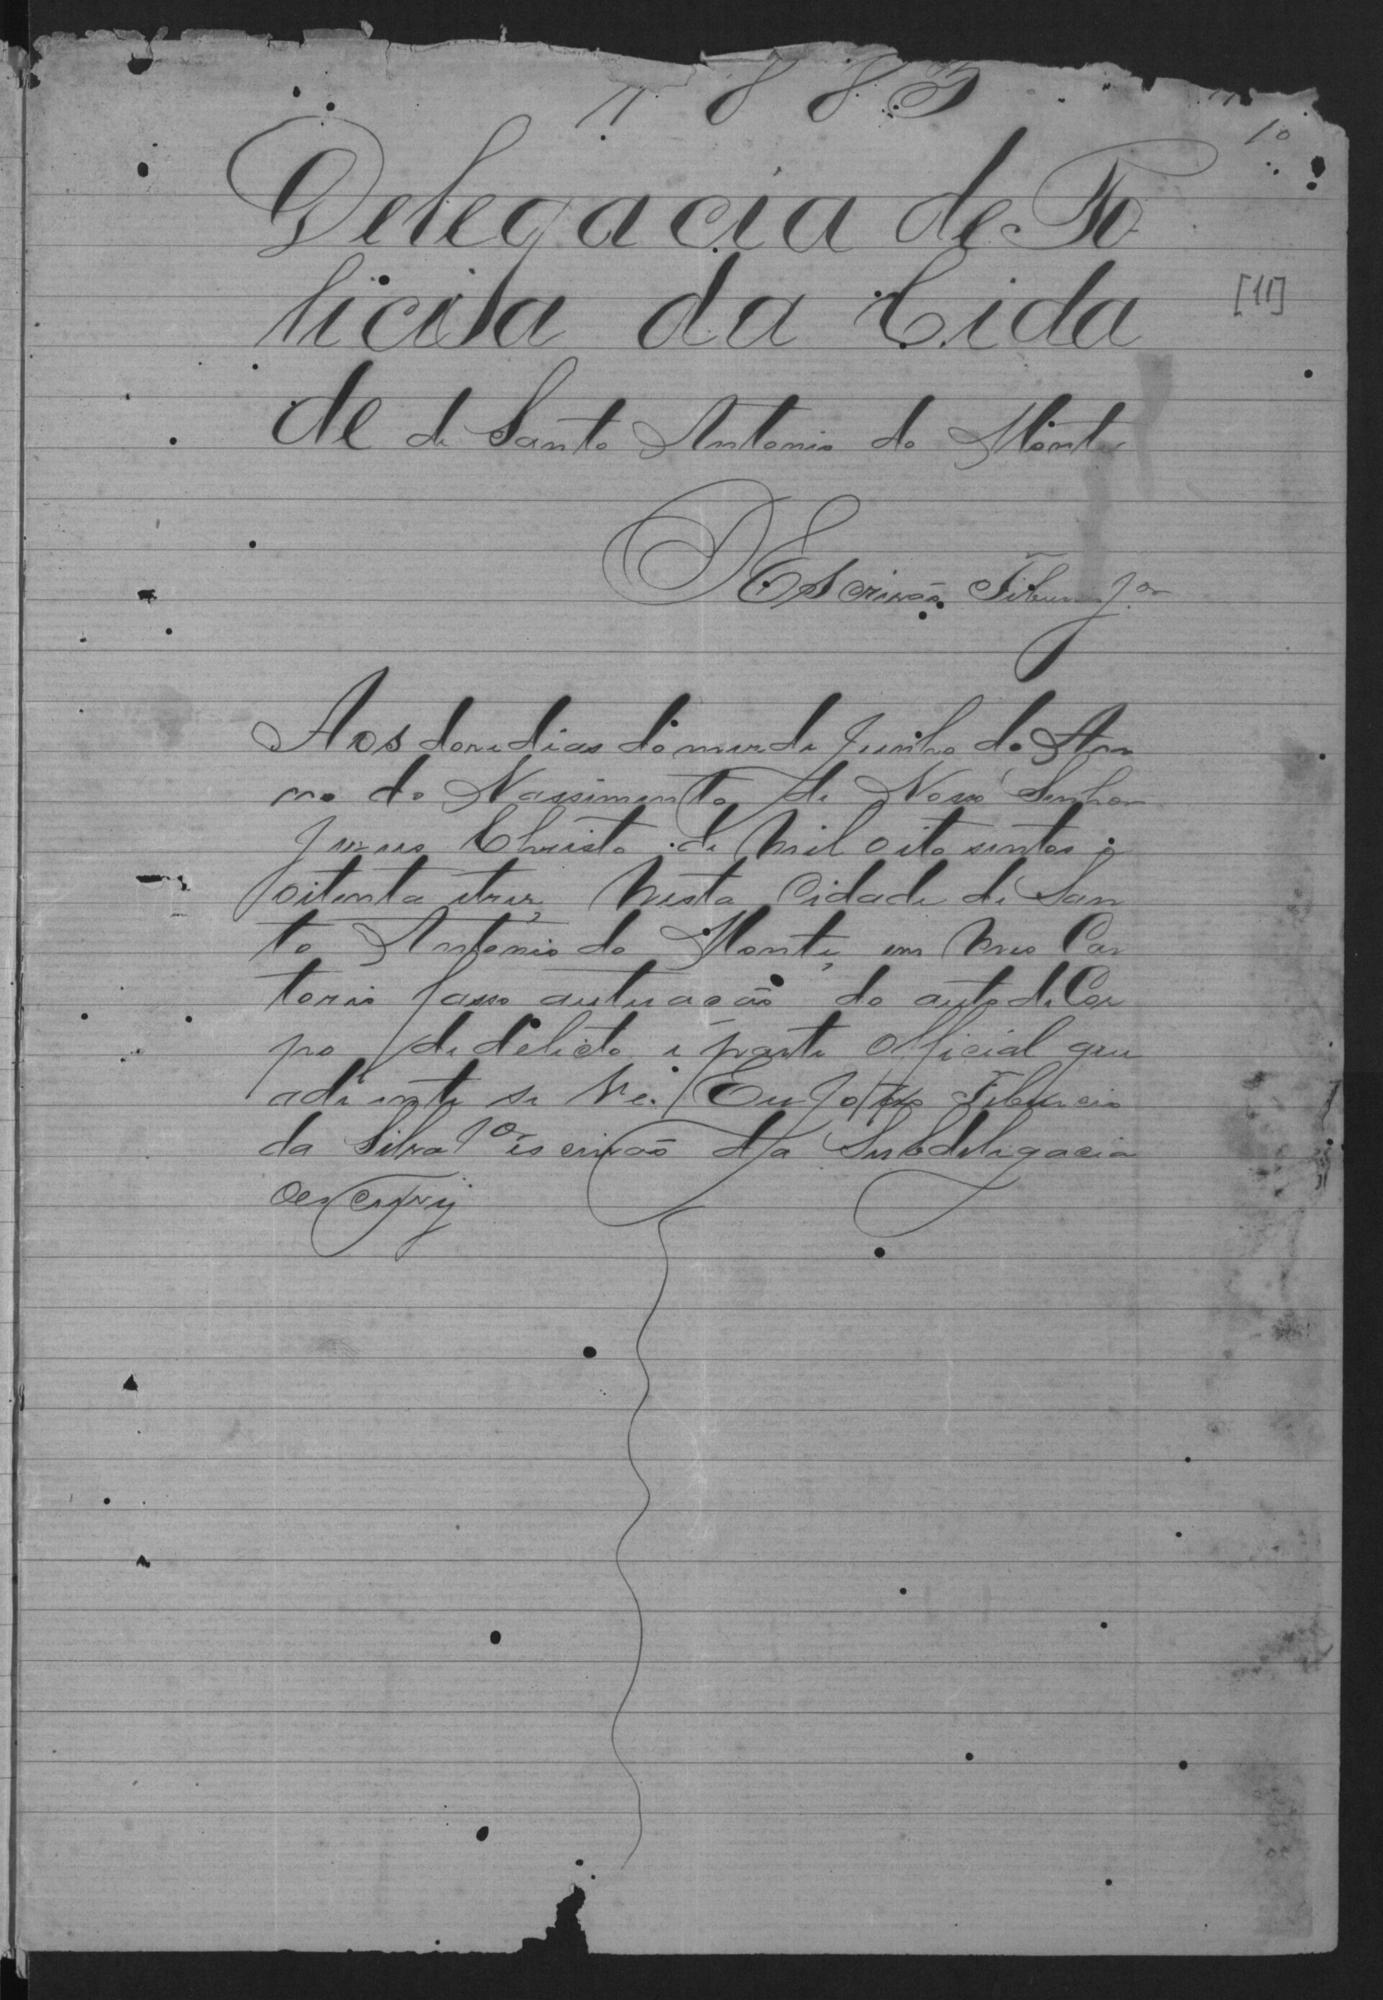 1883
10
Delegacia de Po
licia da Cida
[11]
de de Santo Antonio do Monte
O Escrivão Tiburcio J.or
Aos doze dias do mez de Junho do An
no do Nassimento de Nosso Senhor
Jezus Christo de Mil oito sentos e
oitenta e trez, Nesta Cidade de San
to Antonio do Monte, em Meo Car
torio fasso autuação do auto de Cor
po de delicto e parte Official que
adiente se Vê. Eu Tiburcio
da Silva J.or escrivão da Subdelegacia
escrevy